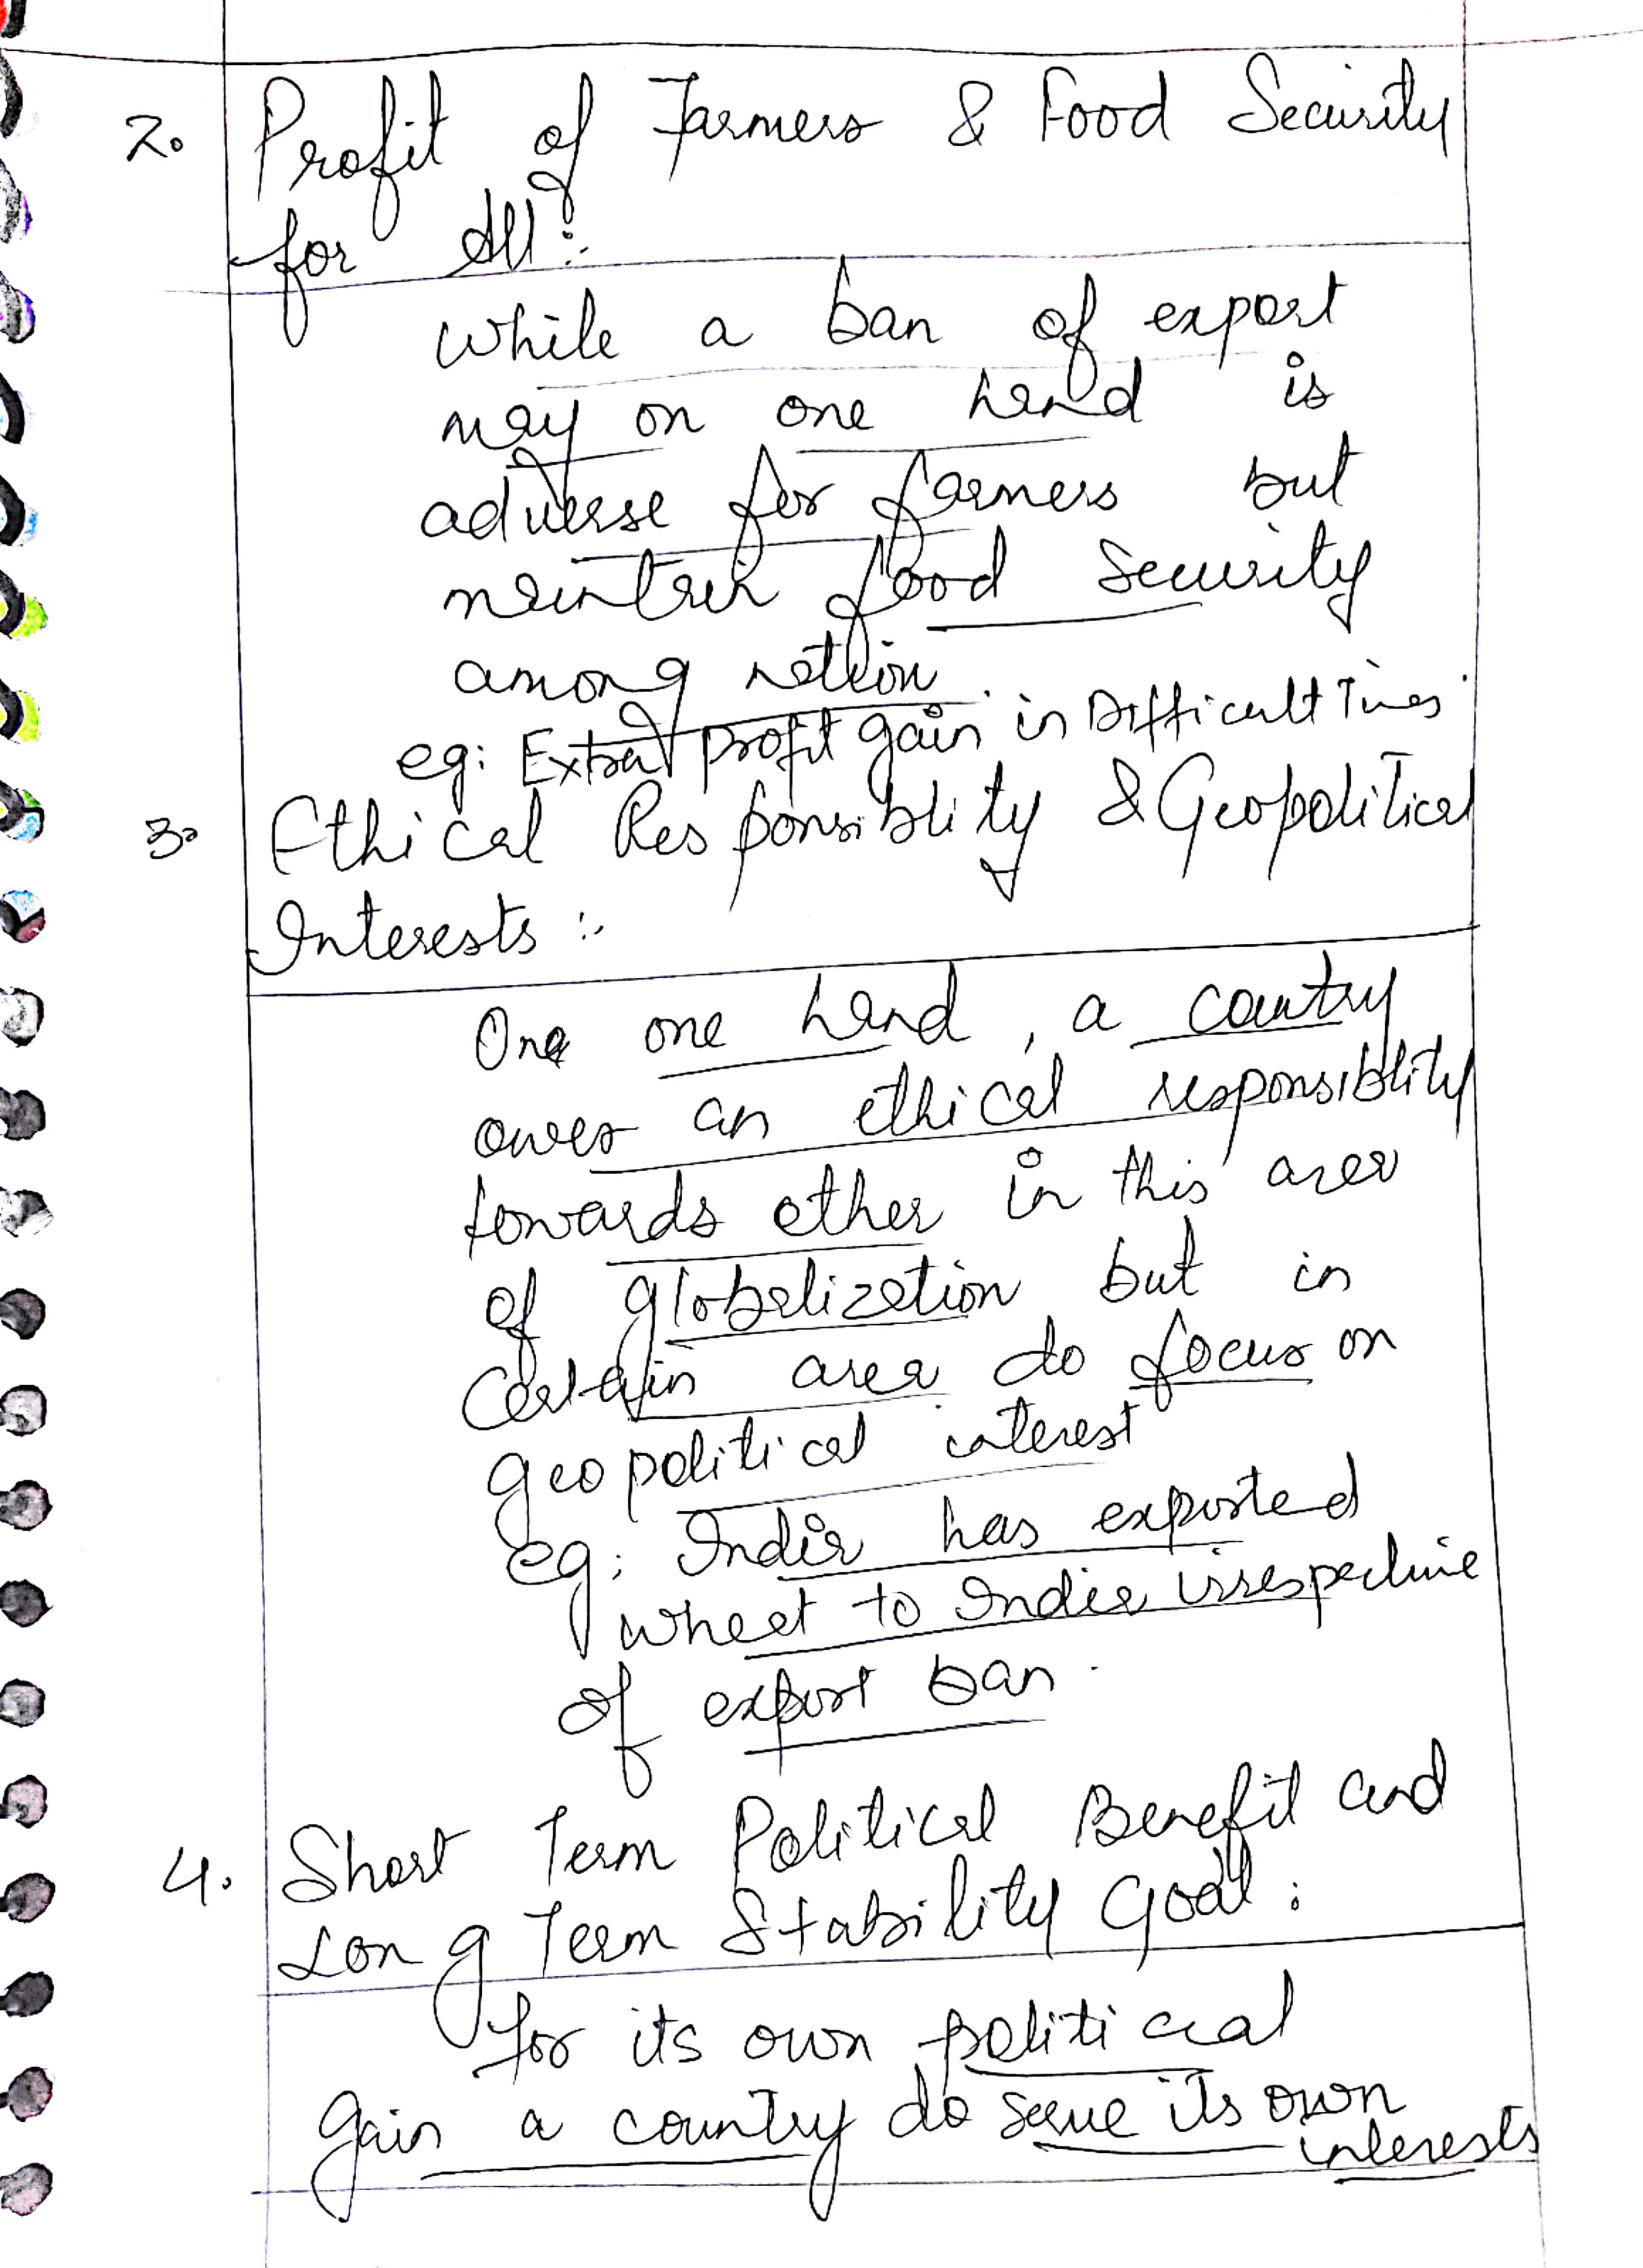 2. Profit of Farmers & Food Security
for All:
while a ban of export
may on one hand is
adverse for farmers but
maintain food security
among nation.
eg: Extra profit gain in Difficult Times
3. Ethical Responsiblity & Geopolitical
Interests :
One one hand, a country
owes an ethical responsiblity
towards other in this area
of globalization but in
certain area do focus on
geopolitical interest
eg: India has exported
wheat to India irrespective
of export ban.
4. Short Term Political Benefit and
Long Term Stability Goal:
for its own political
gain a country do serve its own
interests